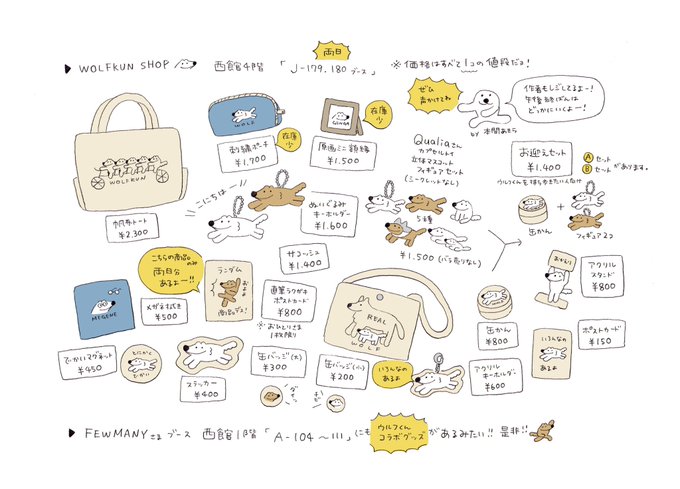 両日
▶ WOLFKUN SHOP 西館4階 「J-179.180 ブース」 ※価格はすべて1つの値段だよ!
WOLFKUN
帆布トート
¥2,300
WOLF
刺繍ポーチ
¥1,700
在庫少
GINGA
原画ミニ額縁
¥1,500
在庫少
ぜひ
声かけてね
作者もレジしてるよー!
午後休けいは
どっかにいくよー!
by 本間あきら
こにちはー
ぬいぐるみ
キーホルダー
¥1,600
Qualiaさん
カプセルトイ
立体マスコット
フィギュアセット
(シークレットなし)
5種
¥1,500 (バラ売りなし)
お迎えセット
¥1,400
Aセット
Bセット があります。
ウルフくんを持ち歩きたい人向け
缶かん
+
フィギュア2コ
MEGENE
メガネふき
¥500
こちらの商品のみ
両日分
あるよー!!
ランダム
およよ
商品デス!
直筆ラクガキ
ポストカード
¥800
※おひとりさま
1枚限り
サコッシュ
¥1,400
REAL
WOLF
缶かん
¥800
おかえり
アクリル
スタンド
¥800
いろんなの
あるよ
ポストカード
¥150
でっかいマグネット
¥450
とにかく
でっかい
ステッカー
¥400
缶バッジ(大)
¥300
缶バッジ(小)
¥200
いろんなの
あるよ
アクリル
キーホルダー
¥600
▶ FEWMANY さま ブース 西館1階 「A-104〜111」にも ウルフくん コラボグッズ があるみたい!! 是非!!